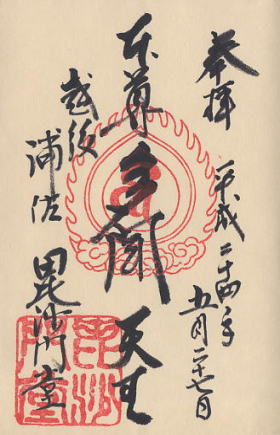 奉拝
平成二十四年
五月二十七日
本尊 多聞天王
越後
浦佐
毘沙門堂
毘沙門堂